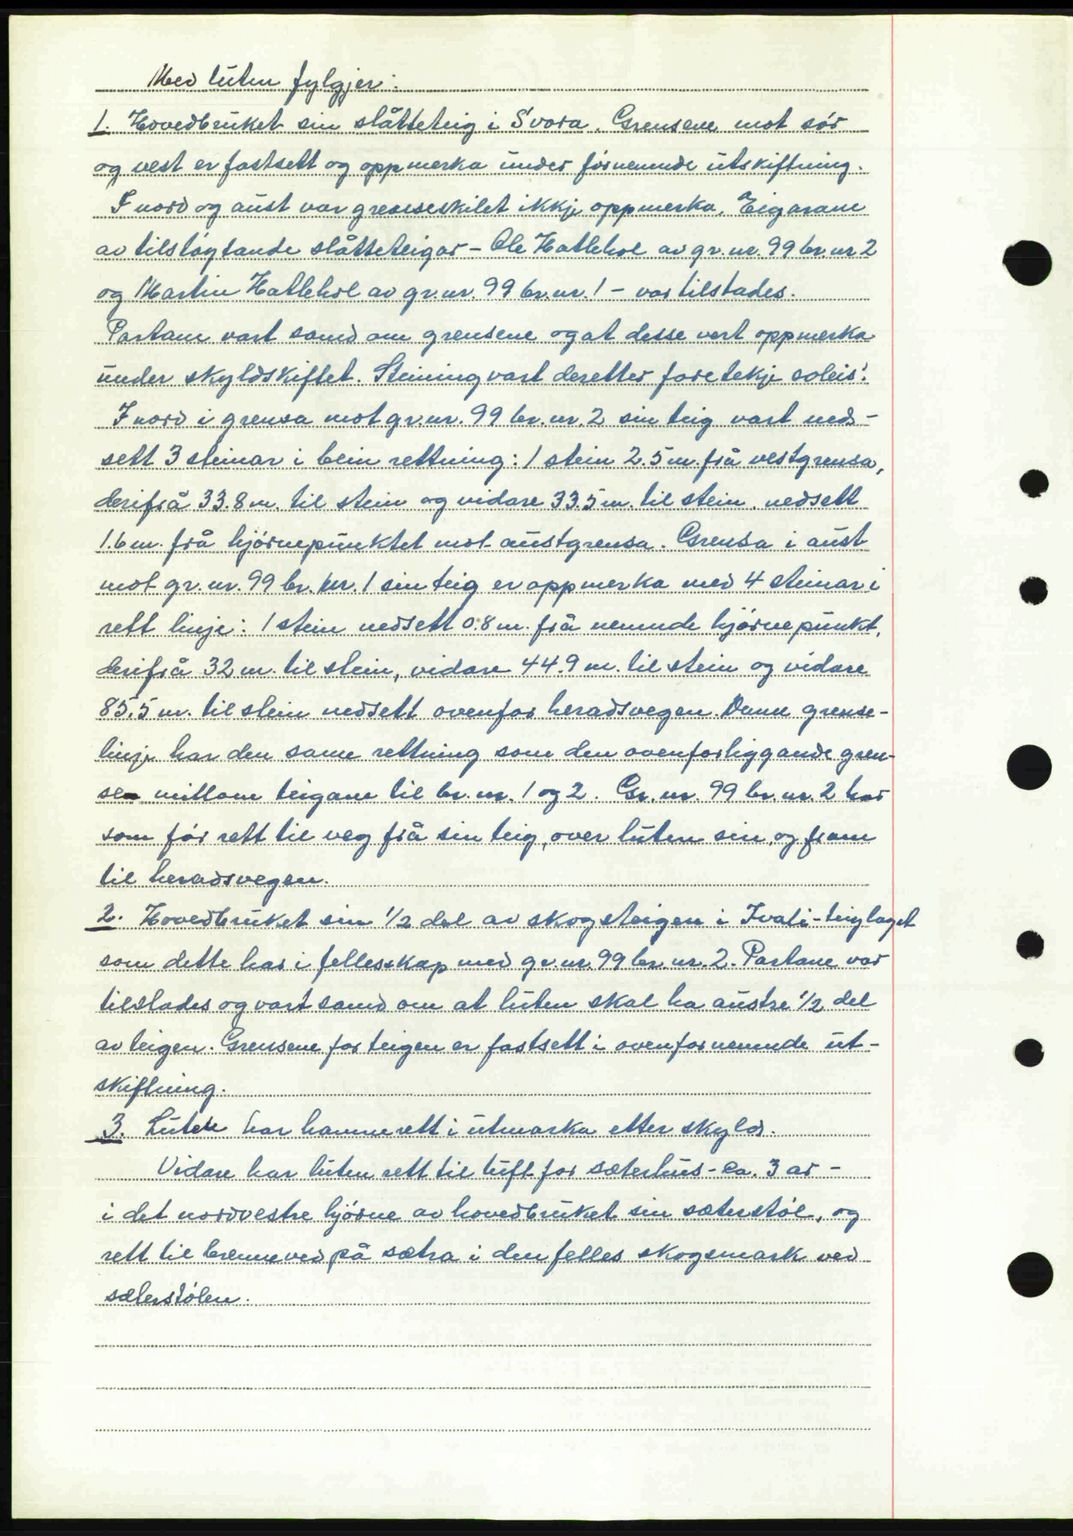 Med luten fylgjer:
1. Hovedbruket sin slåtteteig i Svora. Grensene mot sør
og vest er fastsett og oppmerka under førnemnde utskiftning.
I nord og aust var grenseskilet ikkje oppmerka. Eigarane
av tilstøytande slåtteteigar - Ole Hatlehol av gr.nr. 99 br.nr 2
og Martin Hatlehol av gr.nr. 99 br.nr. 1 - var tilstades.
Partane vart samd om grensene og at desse vert oppmerka
under skyldskiftet. Steining vart deretter foretekje soleis:
I nord i grensa mot gr.nr. 99 br.nr. 2 sin teig vart ned-
sett 3 steinar i bein rettning: 1 stein 2.5 m. frå vestgrensa,
derifrå 33.8 m. til stein og vidare 33.5 m. til stein, nedsett
1.6 m. frå hjørnepunktet mot austgrensa. Grensa i aust
mot gr.nr. 99 br.nr. 1 sin teig er oppmerka med 4 steinar i
rett linje: 1 stein nedsett 0.8 m. frå nemnde hjørnepunkt,
derifrå 32 m. til stein, vidare 44.9 m. til stein og vidare
85.5 m. til stein nedsett ovenfor heradsvegen. Denne grense-
linje har den same rettning som den ovenforliggande gren-
se millom teigane til br.nr. 1 og 2. Gr.nr. 99 br.nr. 2 har
som før rett til veg frå sin teig, over luten sin, og fram
til heradsvegen.
2. Hovedbruket sin 1/2 del av skogsteigen i Ivali-teiglaget
som dette har i fellesskap med gr.nr. 99 br.nr. 2. Partane var
tilstades og vart samd om at luten skal ha austre 1/2 del
av teigen. Grensene for teigen er fastsett i ovenfornemnde ut-
skiftning.
3. Luten har hamnerett i utmarka etter skyld.
Vidare har luten rett til tuft for sæterhus - ca. 3 ar -
i det nordvestre hjørne av hovedbruket sin sæterstøl, og
rett til brenneved på sætra i den felles skogsmark ved
sæterstølen.